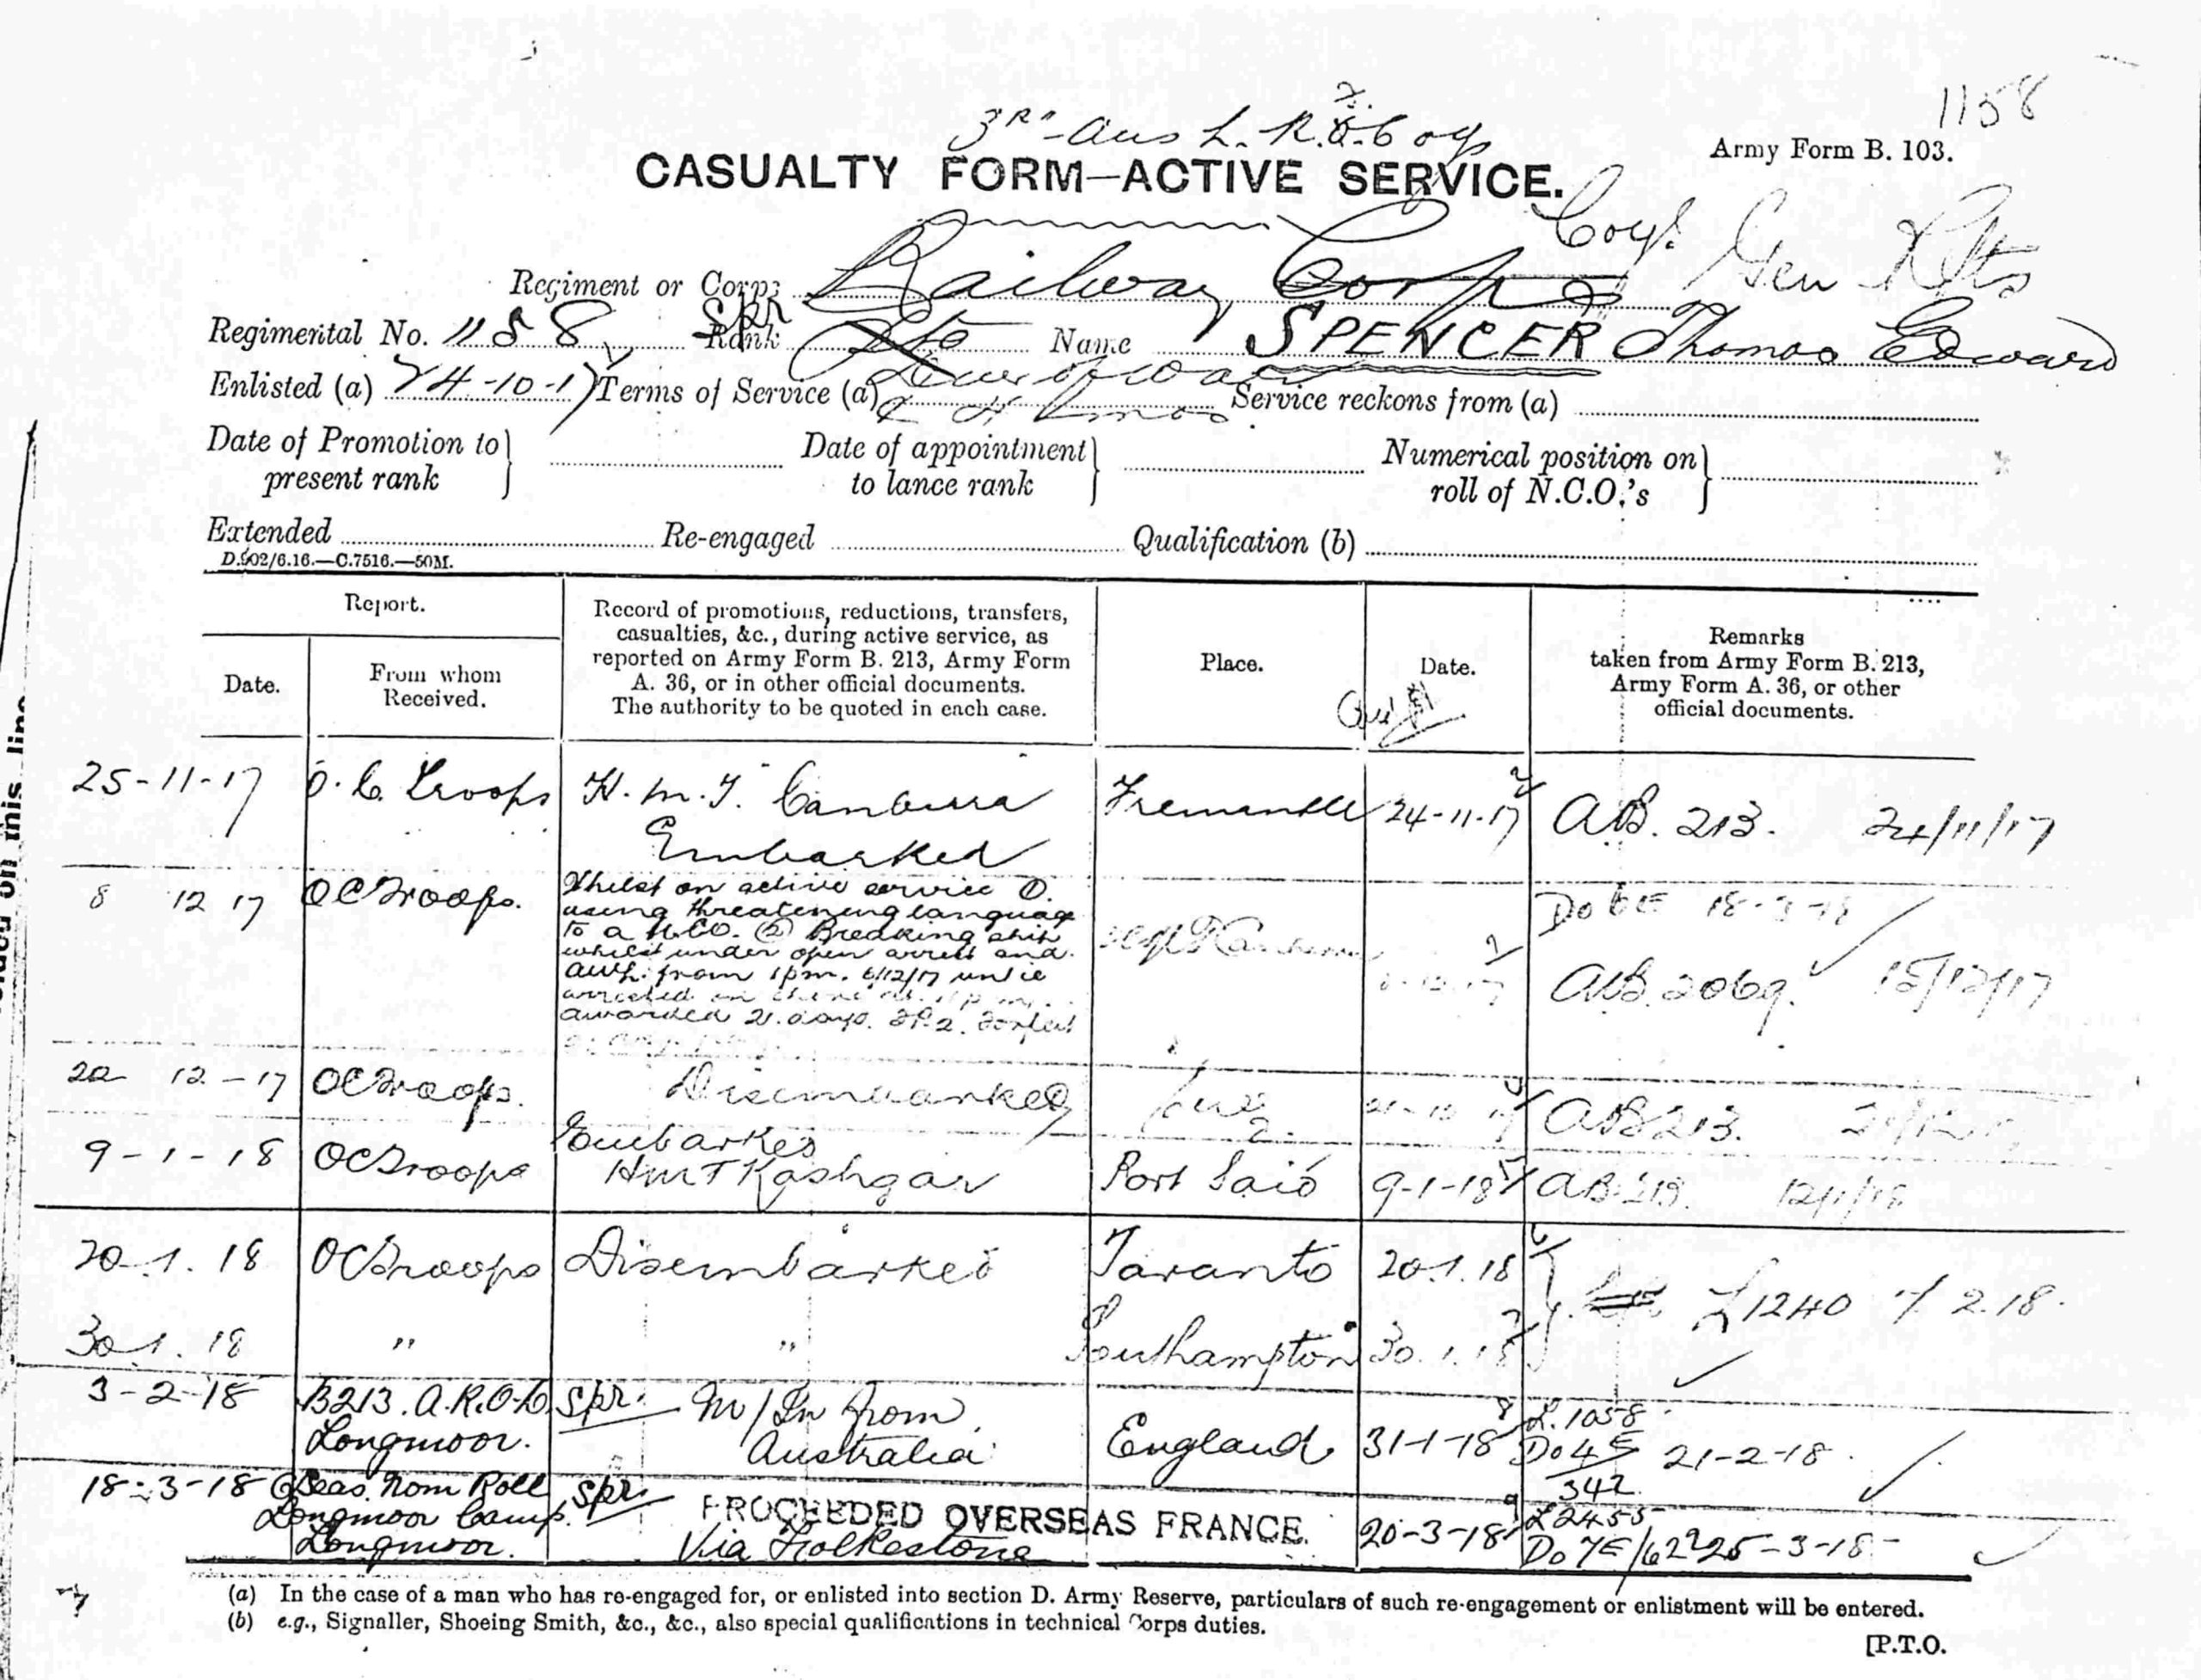 1158
3rd Aus L. R. O. Coy
Army Form B. 103.
CASUALTY FORM—ACTIVE SERVICE.
Regiment or Corps Railway Corps Coy. Gen Rfts
Regimental No. 1158 Spr Rank Pte Name SPENCER Thomas Edward
Enlisted (a) 24-10-17 Terms of Service (a) Service reckons from (a)
Date of Promotion to present rank } Date of appointment to lance rank } Numerical position on roll of N.C.O.'s }
Extended Re-engaged Qualification (b)
D.902/6.16.—C.7516.—50M.
Report.
Date.
From whom Received.
Record of promotions, reductions, transfers,
casualties, &c., during active service, as
reported on Army Form B. 213, Army Form
A. 36, or in other official documents.
The authority to be quoted in each case.
Place.
Date.
Remarks
taken from Army Form B. 213,
Army Form A. 36, or other
official documents.
25-11-17 O.C. Troops H.M.T. Canberra Fremantle 24-11-17 AB. 213. 24/11/17
Embarked
8 12 17 OC Troops. Whilst on active service ①.
using threatening language
to a NCO. ② Breaking ship
whilst under open arrest and
AWL. from 1pm. 6/12/17 until
arrested
awarded 21 days. FP.2. Forfeit
Do 18-3-18
AB. 2069. 15/12/17
22 12-17 OC Troops. Disembarked Suez AB213.
9-1-18 OC Troops Embarked
HMT Kashgar Port Said 9-1-18 AB 213. 12/1/18
20.1.18 OC Troops Disembarked Taranto 20.1.18
L1240 2.18.
30.1.18 " " Southampton 30.1.18
3-2-18 B213. A.R.O.D. Spr. M/In from England 31-1-18 L.1058
Longmoor. Australia Do 4E 21-2-18.
342
18-3-18 O/Seas Nom Roll Spr. PROCEEDED OVERSEAS FRANCE. 20-3-18 L2455
Longmoor Camp.
Longmoor. Via Folkestone Do 7E/62 25-3-18
(a) In the case of a man who has re-engaged for, or enlisted into section D. Army Reserve, particulars of such re-engagement or enlistment will be entered.
(b) e.g., Signaller, Shoeing Smith, &c., &c., also special qualifications in technical Corps duties.
[P.T.O.